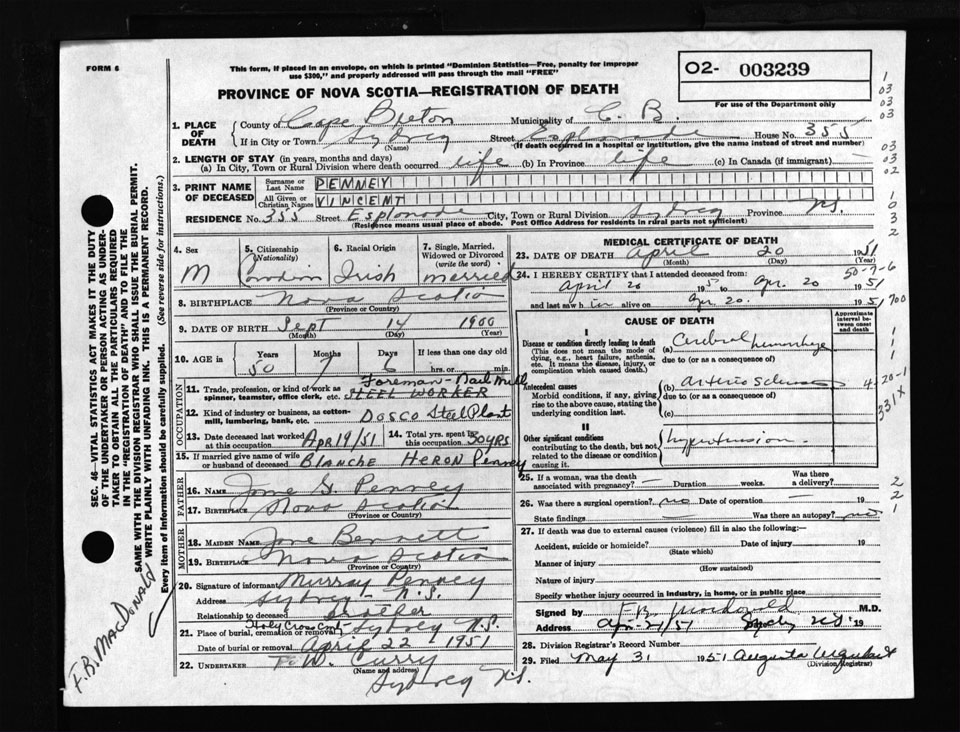 FORM 6
This form, if placed in an envelope, on which is printed "Dominion Statistics—Free, penalty for improper
use $300," and properly addressed will pass through the mail "FREE"
O2- 003239
For use of the Department only
PROVINCE OF NOVA SCOTIA—REGISTRATION OF DEATH
1. PLACE OF DEATH
County of Cape Breton Municipality of C. B.
If in City or Town Sydney Street Esplanade House No. 355
(Name) (If death occurred in a hospital or institution, give the name instead of street and number)
2. LENGTH OF STAY (in years, months and days)
(a) In City, Town or Rural Division where death occurred life (b) In Province life (c) In Canada (if immigrant) —
3. PRINT NAME OF DECEASED
Surname or Last Name PENNEY
All Given or Christian Names VINCENT
RESIDENCE No. 355 Street Esplanade City, Town or Rural Division Sydney Province N.S.
(Residence means usual place of abode. Post Office Address for residents in rural parts not sufficient)
4. Sex M
5. Citizenship (Nationality) Canadian
6. Racial Origin Irish
7. Single, Married, Widowed or Divorced (write the word) married
8. BIRTHPLACE Nova Scotia
(Province or Country)
9. DATE OF BIRTH Sept 14 1900
(Month) (Day) (Year)
10. AGE in Years 50 Months 7 Days 6 If less than one day
hrs. or min.
OCCUPATION
Foreman - Nail Mill
11. Trade, profession, or kind of work as spinner, teamster, office clerk, etc. STEEL WORKER
12. Kind of industry or business, as cotton-mill, lumbering, bank, etc. DOSCO Steel Plant
13. Date deceased last worked at this occupation Apr 19/51
14. Total yrs. spent in this occupation 30 YRS
15. If married give name of wife or husband of deceased BLANCHE HERON Penney
FATHER
16. Name G. Penney
17. Birthplace Nova Scotia
(Province or Country)
MOTHER
18. MAIDEN NAME Bennett
19. BIRTHPLACE Nova Scotia
(Province or Country)
20. Signature of informant Murray Penney
Address Sydney - N.S.
Relationship to deceased brother
21. Place of burial, cremation or removal Holy Cross Cemt. Sydney N.S.
Date of burial or removal April 22 1951
22. UNDERTAKER W. Curry
(Name and address)
Sydney N.S.
MEDICAL CERTIFICATE OF DEATH
23. DATE OF DEATH April 20 1951
(Month) (Day) (Year)
50-7-6
24. I HEREBY CERTIFY that I attended deceased from:
April 20 1951 Apr. 20 1951
and last saw him alive on Apr. 20. 1951
CAUSE OF DEATH
Approximate interval between onset and death
I
Disease or condition directly leading to death
(This does not mean the mode of dying, e.g., heart failure, asthenia, etc. It means the disease, injury, or complication which caused death.)
(a) Cerebral hemorrhage
due to (or as a consequence of)
Antecedent causes
Morbid conditions, if any, giving rise to the above cause, stating the underlying condition last.
(b)
due to (or as a consequence of)
(c)
II
Other significant conditions
contributing to the death, but not related to the disease or condition causing it.
hypertension
4-20-1
331X
25. If a woman, was the death associated with pregnancy? — Duration weeks. Was there a delivery?
26. Was there a surgical operation? no Date of operation — 19
State findings — Was there an autopsy? no
27. If death was due to external causes (violence) fill in also the following:—
Accident, suicide or homicide? Date of injury 19
(State which)
Manner of injury
(How sustained)
Nature of injury
Specify whether injury occurred in industry, in home, or in public place
Signed by F.B. MacDonald M.D.
Address Apr. 21/51 Sydney N.S. 19
28. Division Registrar's Record Number
29. Filed May 31 1951 Augusta
(Division Registrar)
SEC. 46—VITAL STATISTICS ACT MAKES IT THE DUTY
OF THE UNDERTAKER OR PERSON ACTING AS UNDER-
TAKER TO OBTAIN ALL THE PARTICULARS REQUIRED
IN THE "REGISTRATION OF DEATH" AND TO FILE THE
SAME WITH THE DIVISION REGISTRAR WHO SHALL ISSUE THE BURIAL PERMIT.
WRITE PLAINLY WITH UNFADING INK. THIS IS A PERMANENT RECORD.
Every item of information should be carefully supplied. (See reverse side for instructions.)
F.B. MacDonald
1
03
03
03
03
03
02
1
0
3
2
700
1
1
1
2
2
1